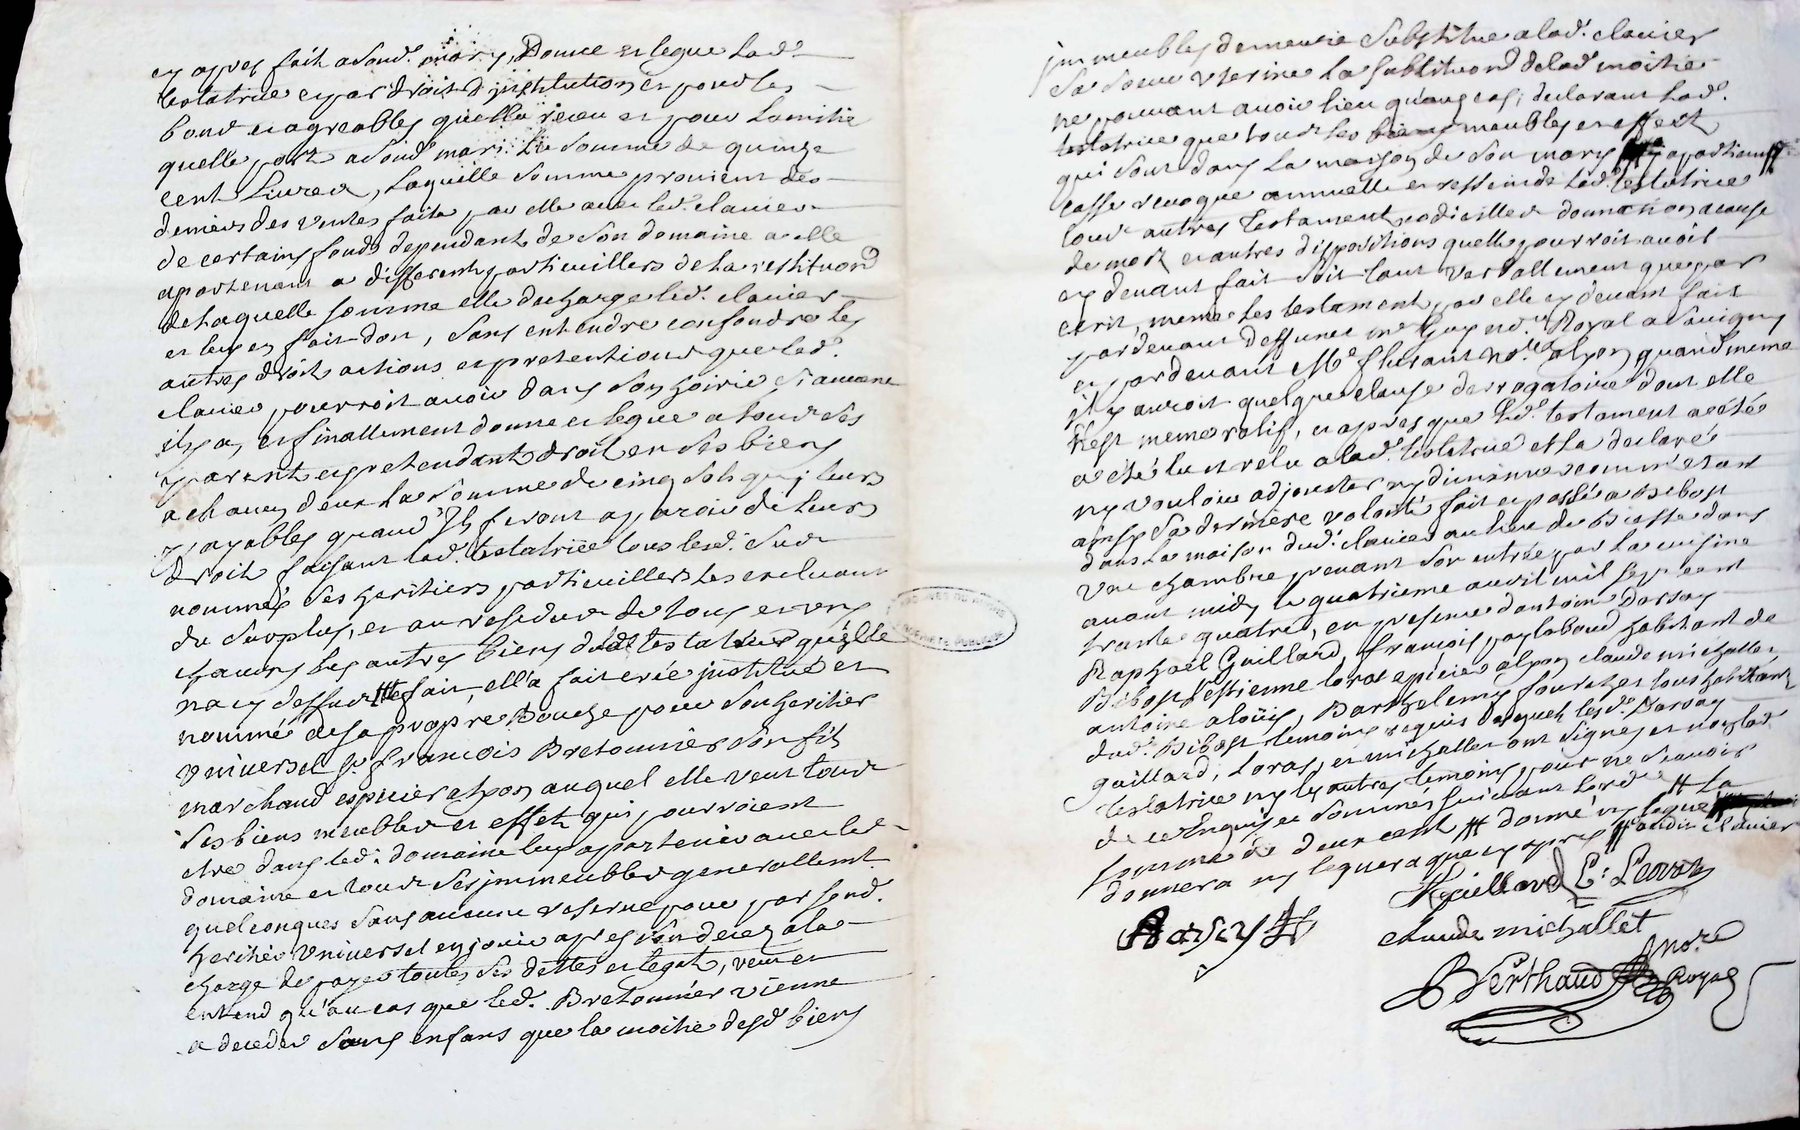 cy apres fait a Sond. mary, Donne et legue lad.
testatrice et par droit d'jnstitution et pour les
bons et agreables quella reçeu et pour Lamitie
quelle port a Sond mari La Somme de quinze
cent Livres, Laquelle Somme provient des
deniers des ventes faite par elle avec led. clavier
de certains fonds dependant de Son domaine a elle
apartenant a differents particuilliers de la restituon
de Laquelle Somme elle decharge led. clavier
et luy en fait don, Sans entendre confondre les
autres droit actions et pretentions que led.
clavier pourroit avoir dans Son hoirie Si aucune
il y a, et finallement donne et legue a tous Ses
parents et pretendants droit en Ses biens
a chacun d'eux La Somme de cinq Sols qui leurs
payables quand Ils feront aparoir de leurs
droit faisant lad. testatrice tous lesd. Sus
nommés Ses heritiers particuilliers les excluant
du Surplus, et au residu de tous et uns
chacuns les autres biens de lad testatrice quelle
na cy dessus fait, ella fait crée jnstitué et
nommé de sa propre Bouche pour Son heritier
universel Sr. françois Bretonnier Son fils
marchand espicier a Lyon auquel elle veut tous
Ses biens meubles et effets qui pourroient
etre dans led. domaine luy appartenir avec led
domaine et tous Ses jmmeubles generallemt
quelconques Sans aucune reserve pour par Sond.
heritier universel en jouir apres Son decez a la
charge de payer toutes Ses dettes et legats, veut et
entend qu'au cas que led. Bretonnier vienne
a deceder Sans enfans que la moitie desd biens
jmmeubles demeure Substitue a lad. clavier
Sa Soeur uterine La Substituon de lad moitie
ne pouvant avoir lieu qu'audt cas; declarant Lad.
testatrice que tous les biens meubles et effets
qui Sont dans La maison de Son mary luy apartiennt
casse revoque annulle et resseinde Lad. testatrice
tous autres testament codicilles donnation a cause
de mort et autres dispositions quelle pourroit avoir
cy devant fait Soit tant verballement que par
ecrit, meme les testament par elle cy devant fait
pardevant deffunct me Guy nore Royal a Savigny
et par devant Me flurant nore a Lyon quand meme
jl y auroit quelque clause derrogatoire dont elle
nest memoratif, et apres que led. testament a été
a été lu et relu a lad. testatrice et la declaré
ny vouloir adjouter ny diminuer comm' etant
ainsy Sa derniere volonté fait et passé a Bibost
dans La maison dud. clavier au lieu de dans
une chambre prenant Son entrée par La cuisine
avant midy le quatrieme avril mil Sept cent
trente quatre, en presence d'antoine Darsay
Raphael Guillard, françois paylaboud habitant de
Bibost, Estienne Loras epicier a Lyon claude michallet
antoine aloüis, Barthelemy fourcher tous habitants
dud. Bibost temoins requis desquels lesd. Darsay
guillard, Loras, et michallet ont Signes et non lad.
testatrice ny les autres temoins pour ne Scavoir
de ce Enquis et Sommés Suivant Lord.ce # La
Somme de deux cent # donné ny legué
donnera ny leguera que cy apres # audit Clavier
RGuillard E: Loras
Darsay
claude michallet
Berthaud Nore
Royal